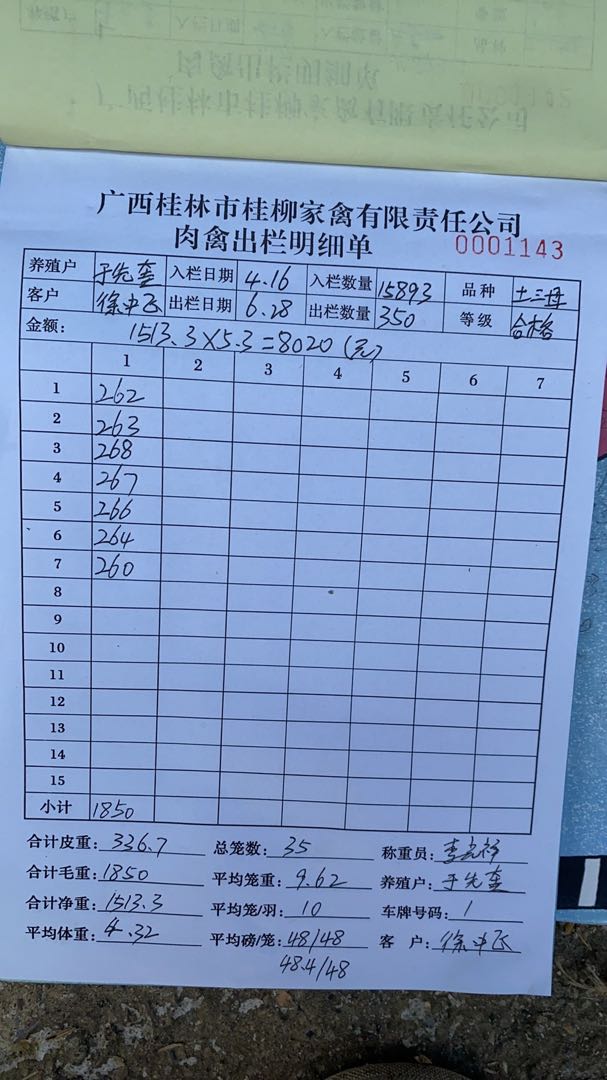 广西桂林市桂柳家禽有限责任公司
肉禽出栏明细单 0001143
养殖户 于先奎 入栏日期 4.16 入栏数量 15893 品种 土三母
客户 徐中飞 出栏日期 6.28 出栏数量 350 等级 合格
金额: 1513.3×5.3=8020(元)
1 2 3 4 5 6 7
1 262
2 263
3 268
4 267
5 266
6 264
7 260
8
9
10
11
12
13
14
15
小计 1850
合计皮重: 336.7 总笼数: 35 称重员:
合计毛重: 1850 平均笼重: 9.62 养殖户: 于先奎
合计净重: 1513.3 平均笼/羽: 10 车牌号码: 1
平均体重: 4.32 平均磅/笼: 48/48 客 户: 徐中飞
48.4/48